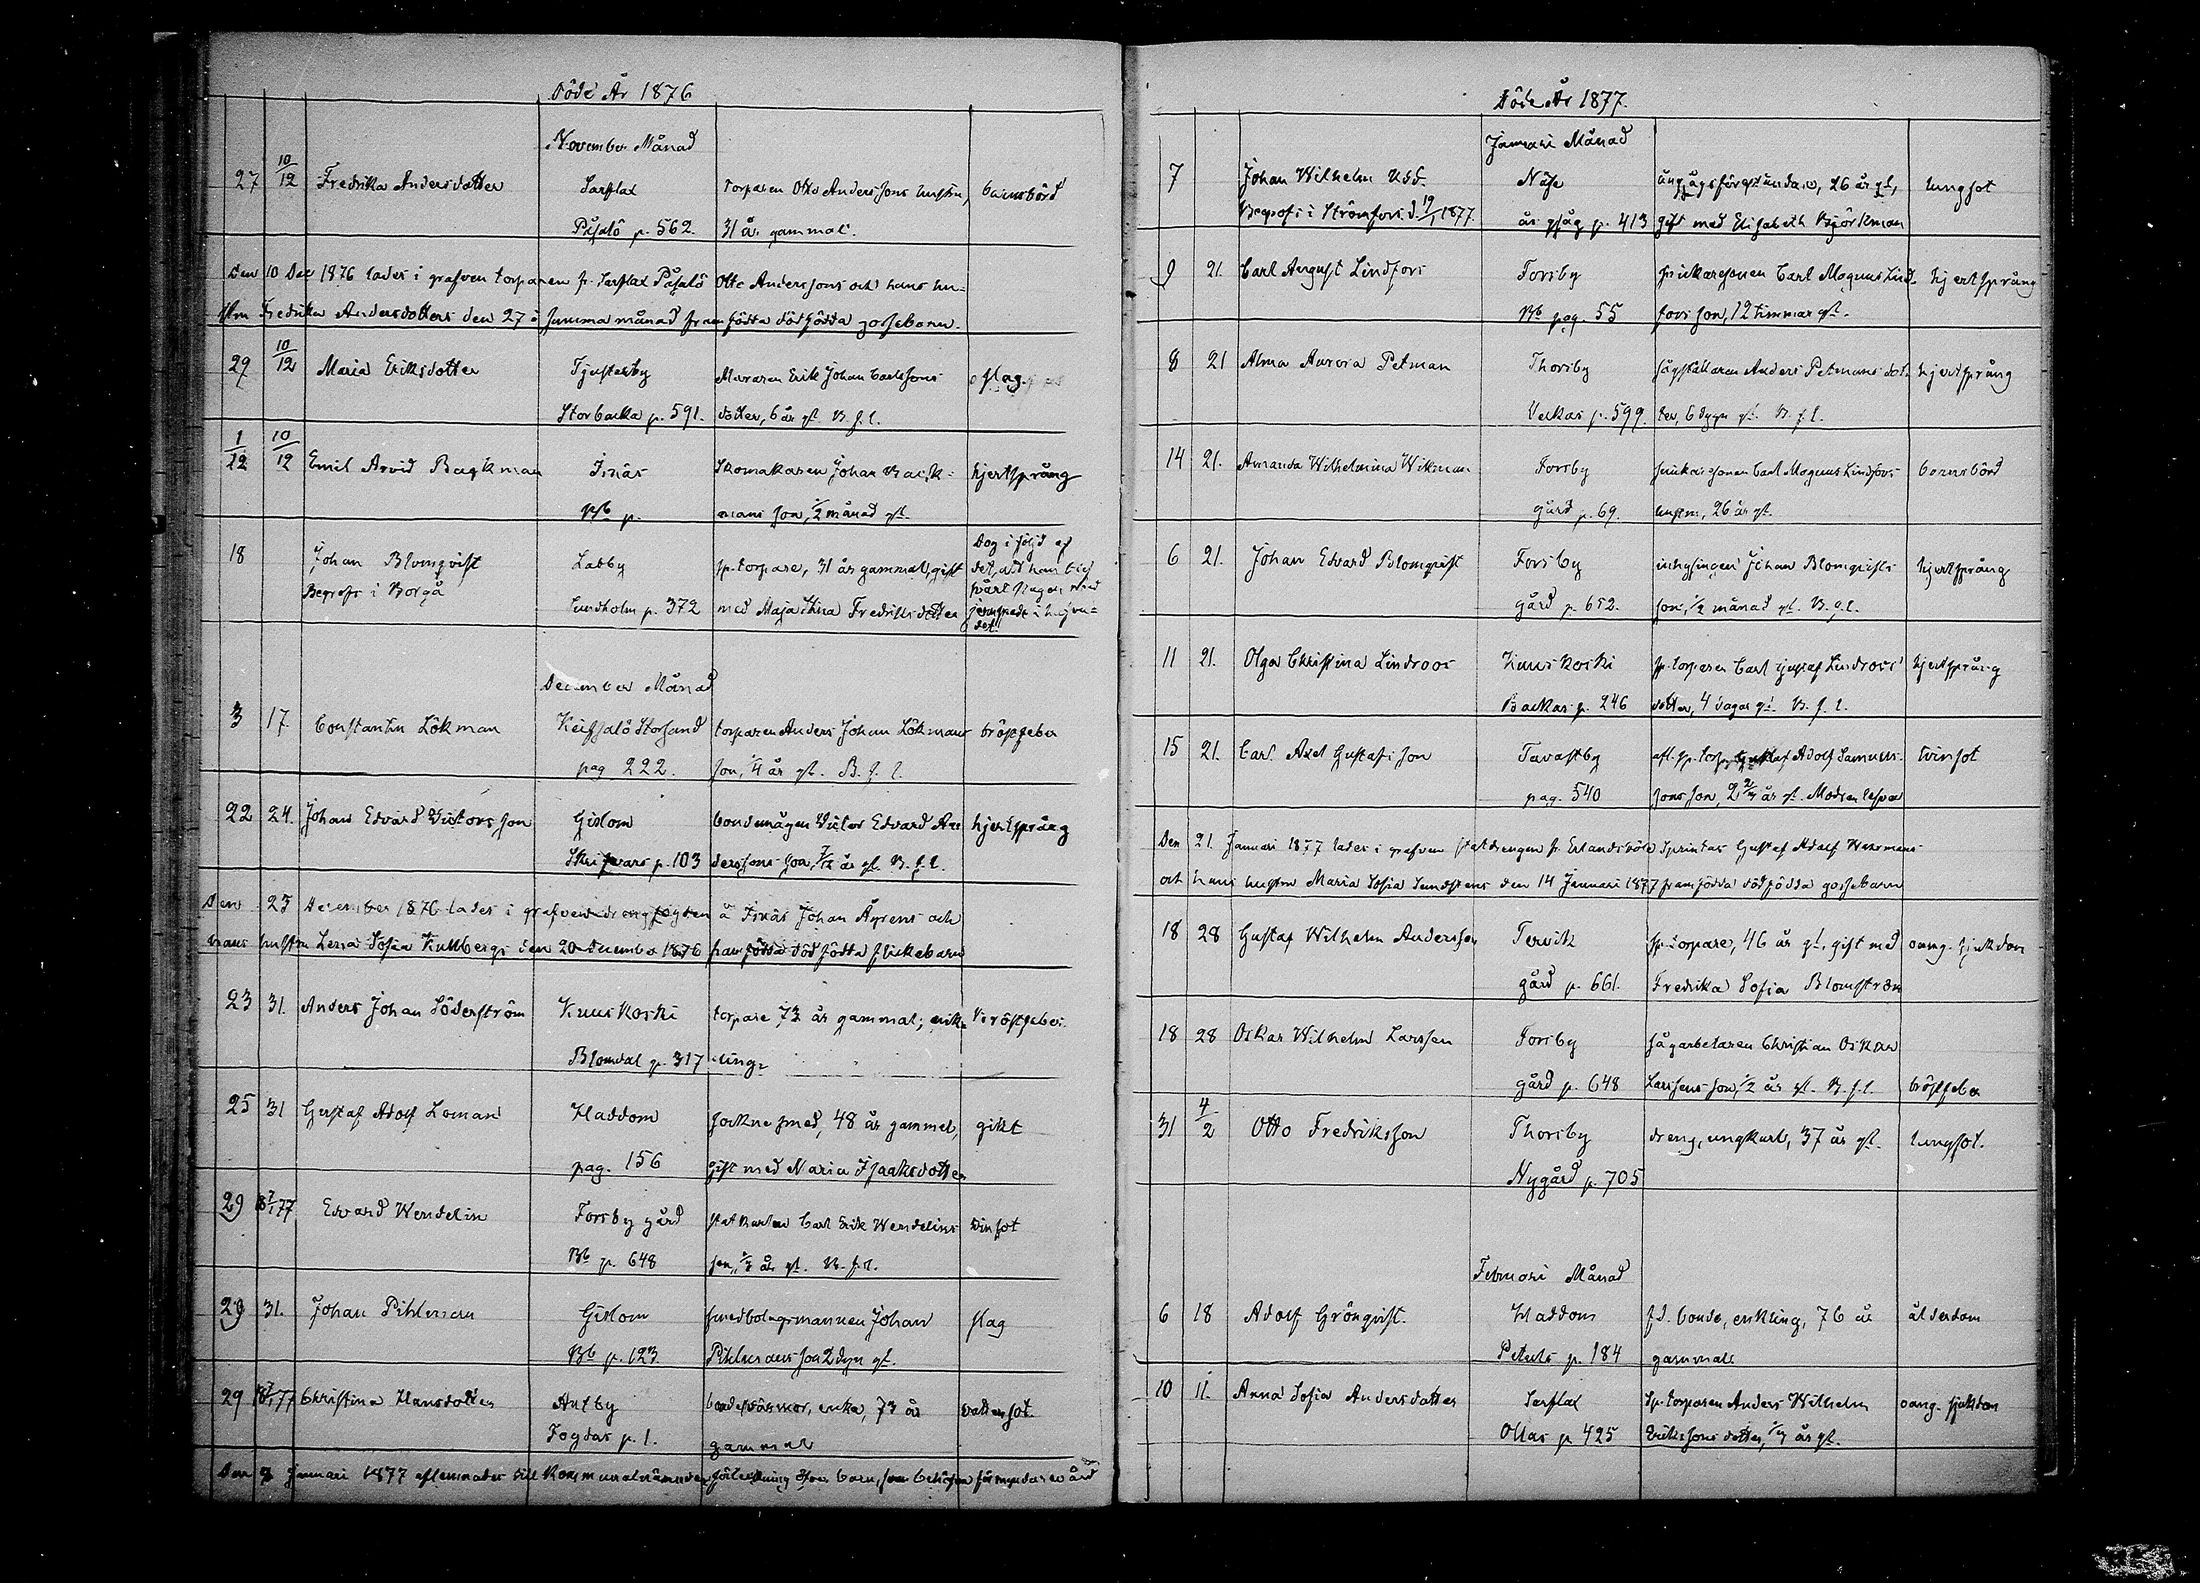 Döde År 1876
November Månad
27 10/12 Fredrika Andersdotter Sarflax torparen Otto Anderssons hustru, barnsbörd
Påsalö p. 562. 31 år gammal.
Den 10 Dec 1876 lades i grafven torparen fr. Sarflax Påsalö Otto Anderssons och hans hu-
stru Fredrika Andersdotters den 27 i samma månad framfödda dödfödda gossebarn.
29 10/12 Maria Eriksdotter Tjusterby Muraren Erik Johan Carlssons slag
Storbacka p. 591. dotter, 6 år gl. B. f. l.
1/12 10/12 Emil Arvid Backman Isnäs Skomakaren Johan Back- hjertsprång
Bb p. mans son, 1/2 månad gl.
18 Johan Blomqvist Labby sp. torpare, 31 år gammal, gift Dog i följd af
det, att han blef
Begrofs i Borgå Sundholm p. 372 med Maja Stina Fredriksdotter
jernspade i hufvu-
det.
December Månad
3 17 Constantin Lökman Keitsalö Storsand torparen Anders Johan Lökmans bröstfeber
pag 222. son, 1/4 år gl. B. f. l.
22 24. Johan Edvard Victorsson Gislom bondemågen Victor Edvard An- hjertsprång
Skrifvars p. 103 derssons son, 7/12 år gl. B. f. l.
Den 25 December 1876 lades i grafven drengfogden å Isnäs Johan Åyrens och
hans hustru Lena Sofia Kullbergs den 20 December 1876 framfödda dödfödda flickebarn
23 31. Anders Johan Söderström Kuuskoski torpare 73 år gammal; enk- bröstfeber.
Blomdal p. 317 ling.
25 31 Gustaf Adolf Loman Haddom sockne smed, 48 år gammal, gikt
pag. 156 gift med Maria Isaaksdotter
29 18 7/1 77 Edvard Wendelin Forsby gård statkarlen Carl Erik Wendelins tvinsot
Bb p. 648 son, 1/3 år gl. B. f. l.
29 31. Johan Pihlman Gislom smedbolagsmannen Johan slag
Bb p. 123. Pihlmans son 2 dyn gl.
29 18 7/1 77 Christina Hansdotter Antby bondesvärmor, enka, 73 år vattensot.
Fogdas p. 1. gammal
Den 9 Januari 1877 aflemnades till Kommunalnämnden förteckning öfver barn, som behöfva förmyndarevård
Döde År 1877.
Januari Månad
7 Johan Wilhelm Udd. Näse ångsågsföreståndare, 26 år gl, lungsot
Begrofs i Strömfors d. 19/1 1877. ångsåg p. 413 gift med Elisabeth Björkman
9 21. Carl August Lindfors Forsby snickaresonen Carl Magnus Lind- hjertsprång
Bb pag. 55 fors son, 12 timmar gl.
8 21 Alma Aurora Petman Thorsby sågställaren Anders Petmans dot- hjertsprång
Veckas p. 599. ter, 6 dygn gl. B. f. l.
14 21. Amanda Wilhelmina Wikman Forsby snickaresonen Carl Magnus Lindfors barnsbörd
gård p. 69. hustru, 26 år gl.
6 21. Johan Edvard Blomqvist Forsby inhysingen Johan Blomqvists hjertsprång
gård p. 652. son, 1/2 månad gl. B. f. l.
11 21. Olga Christina Lindroos Kuuskoski sp. torparen Carl Gustaf Lindroos' hjertsprång
Backas p. 246 dotter, 4 dagar gl. B. f. l.
15 21. Carl Axel Gustafsson Tavastby afl. sp. torp. Gustaf Adolf Samuels- tvinsot
pag. 540 sons son, 2 2/3 år gl. Modren lefver
Den 21. Januari 1877 lades i grafven statdrengen fr. Erlandsböle Sprintas Gustaf Adolf Wahrmans
och hans hustru Maria Sofia Lundstens den 14 Januari 1877 framfödda dödfödda gossebarn
18 28 Gustaf Wilhelm Andersson Tervik sp. torpare, 46 år gl, gift med oang. sjukdom
gård p. 661. Fredrika Sofia Blomström
18 28 Oskar Wilhelm Larssen Forsby sågarbetaren Christian Oskar
gård p. 648 Larssens son, 1/2 år gl. B. f. l. bröstfeber
31 4/2 Otto Fredriksson Thorsby dreng, ungkarl, 37 år gl. lungsot.
Nygård p. 705
Februari Månad
6 18 Adolf Grönqvist. Haddom f.d. bonde, enkling, 76 år ålderdom
Peters p. 184 gammal
10 11. Anna Sofia Andersdotter Sarflax Sp. torparen Anders Wilhelm oang. sjukdom
Ollas p 425 Erikssons dotter, 1/4 år gl.